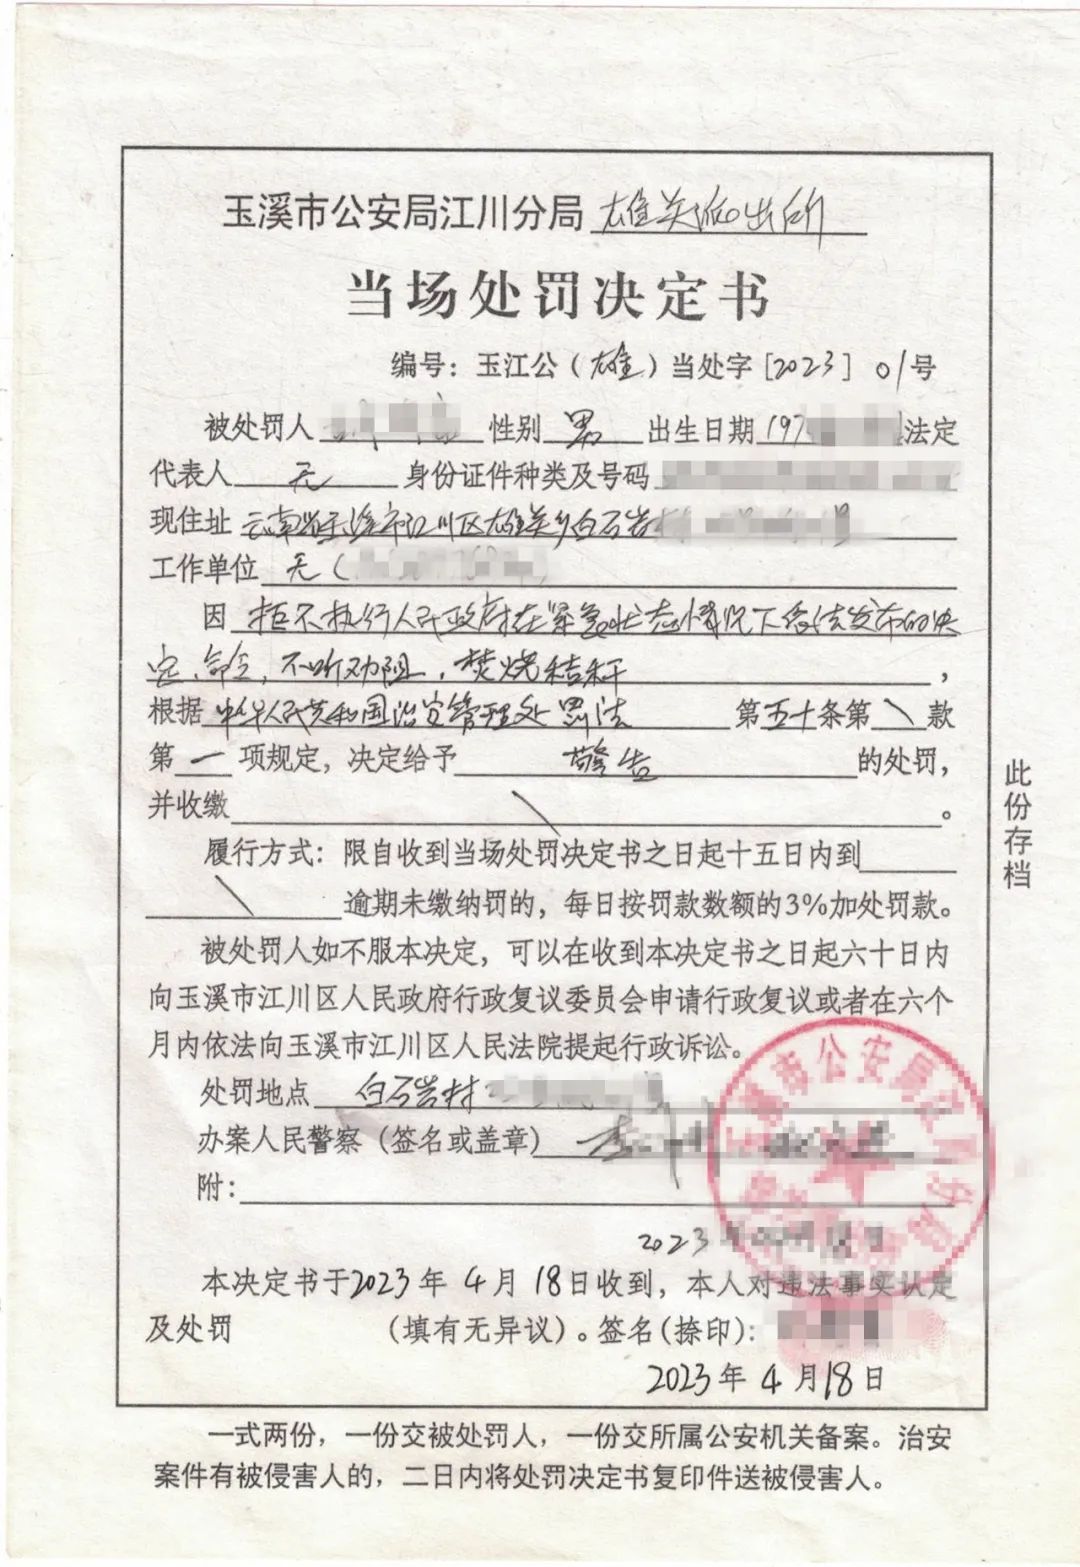 玉溪市公安局江川分局 雄关派出所
当场处罚决定书
编号：玉江公（雄）当处字［2023］01号
被处罚人 性别 男 出生日期 197 法定
代表人 无 身份证件种类及号码
现住址 云南省玉溪市江川区雄关乡白石岩 号
工作单位 无（
因 拒不执行人民政府在紧急状态情况下依法发布的决
定、命令，不听劝阻，焚烧秸秆，
根据 中华人民共和国治安管理处罚法 第五十条第 \ 款
第 一 项规定，决定给予 警告 的处罚，
并收缴 \ 。
履行方式：限自收到当场处罚决定书之日起十五日内到
\ 逾期未缴纳罚的，每日按罚款数额的3%加处罚款。
被处罚人如不服本决定，可以在收到本决定书之日起六十日内
向玉溪市江川区人民政府行政复议委员会申请行政复议或者在六个
月内依法向玉溪市江川区人民法院提起行政诉讼。
处罚地点 白石岩村
办案人民警察（签名或盖章）
附：
2023
本决定书于2023年4月18日收到，本人对违法事实认定
及处罚 （填有无异议）。签名（捺印）：
2023年4月18日
一式两份，一份交被处罚人，一份交所属公安机关备案。治安
案件有被侵害人的，二日内将处罚决定书复印件送被侵害人。
此份存档
市公安局江川分局